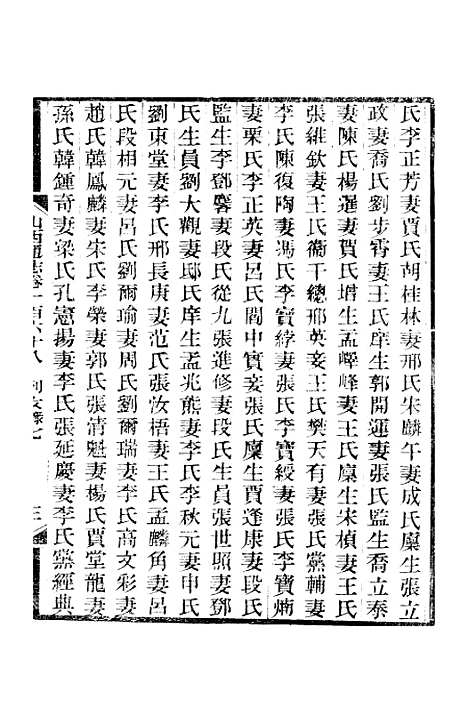 氏李正芳妻賈氏胡桂林妻邢氏朱麟午妻成氏廩生張立
政妻喬氏劉步霄妻王氏庠生郭開運妻張氏監生喬立泰
妻陳氏楊暹妻賀氏增生孟嶧峰妻王氏廩生宋楨妻王氏
張維欽妻王氏衞千總邢英妾王氏樊天有妻張氏黨輔妻
李氏陳復陶妻馮氏李寶綍妻張氏李寶綬妻張氏李寶㷍
妻栗氏李正英妻呂氏閻中寶妾張氏廩生賈逢康妻段氏
監生李鄧馨妻段氏從九張進修妻段氏生員張世照妻鄧
氏生員劉大觀妻邸氏庠生孟兆熊妻李氏李秋元妻申氏
劉東堂妻李氏邢長庚妻范氏張汝梧妻王氏孟麟角妻呂
氏段相元妻呂氏劉爾瑜妻周氏劉爾瑞妻李氏高文彩妻
趙氏韓鳳麟妻宋氏李榮妻郭氏張清魁妻楊氏賈堂龍妻
孫氏韓鍾奇妻梁氏孔憲揚妻李氏張延慶妻李氏黨經典
山西通志卷一百六十八 列女錄七 三